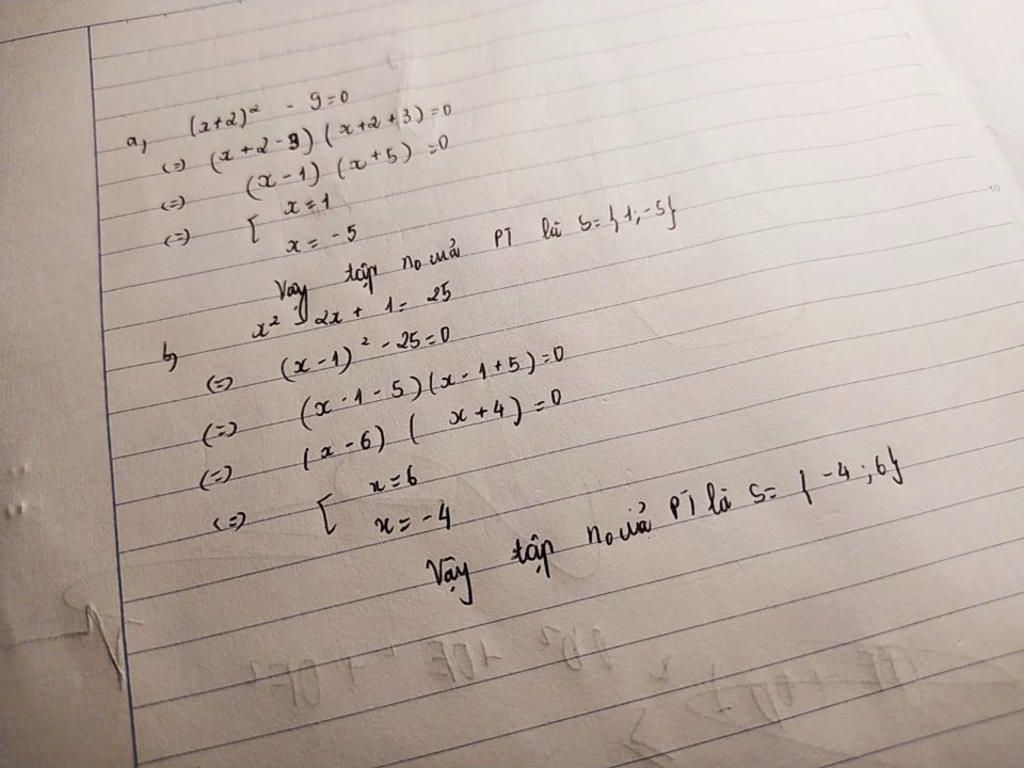 a, (x+2)² - 9=0
(=) (x+2-3)(x+2+3)=0
(=) (x-1) (x+5) =0
(=) [ x=1
x= -5
Vậy tập no của PT là S={1;-5}
b, x² - 2x + 1= 25
(=) (x-1)² - 25=0
(=) (x-1-5)(x-1+5)=0
(=) (x-6) ( x+4)=0
(=) [ x=6
x= -4
Vậy tập no của PT là S= { -4 ; 6}